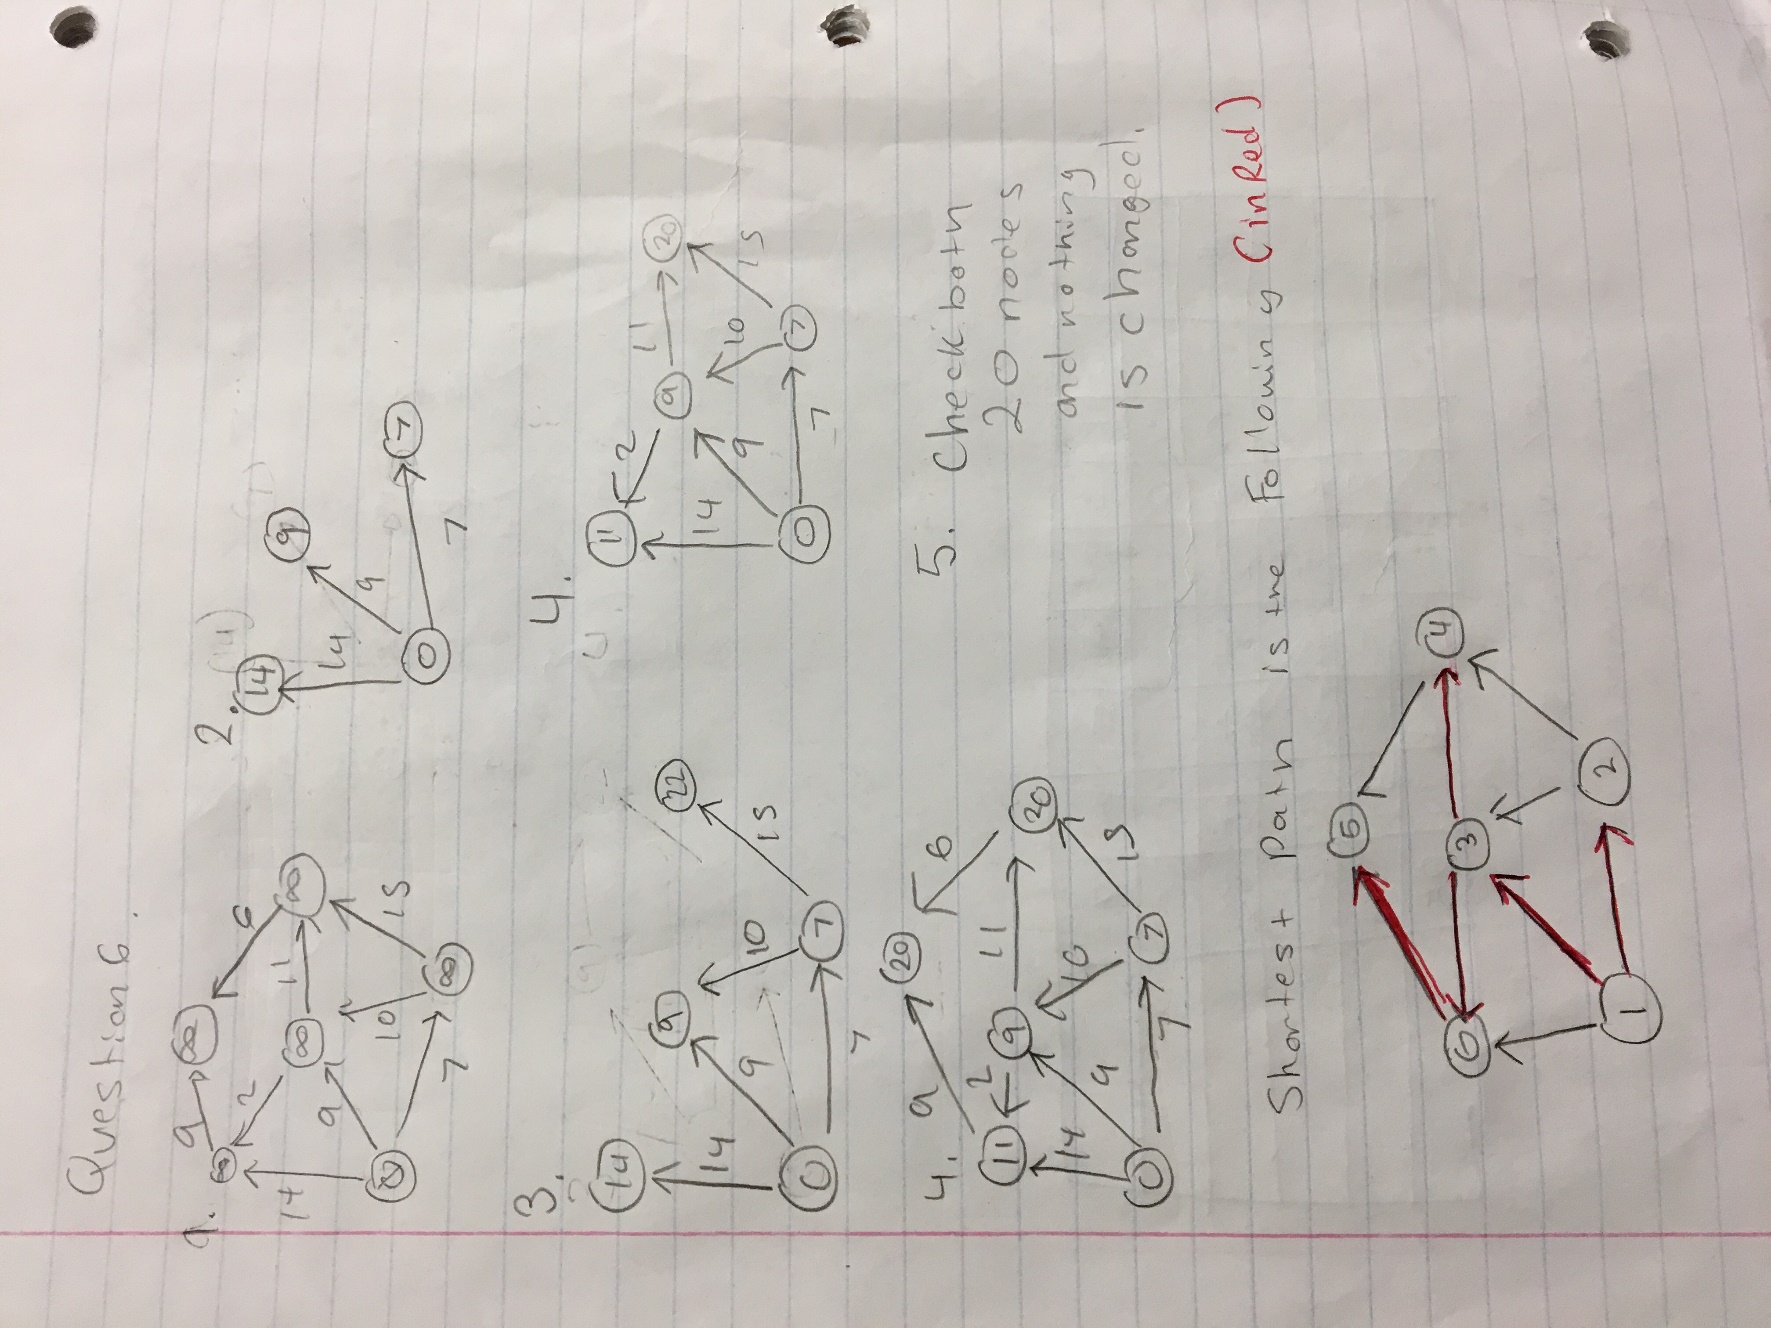 Question 6.
1.
9
∞
6
∞
2
∞
11
∞
14
9
10
15
7
∞
2.
14
9
14
9
0
7
7
3.
14
9
22
14
9
10
15
0
7
7
4.
11
2
9
11
20
14
9
10
15
0
7
7
4.
9
20
6
11
2
9
11
20
14
9
10
15
0
7
7
5. Check both
20 nodes
and nothing
is changed.
Shortest Path is the Following (in Red)
5
6
3
4
1
2